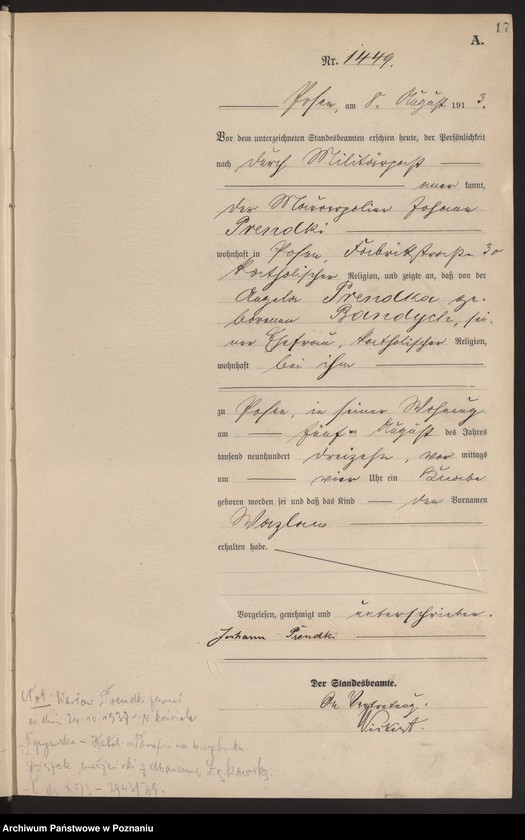 17
A.
Nr. 1449.
Posen, am 8. August 1913.
Vor dem unterzeichneten Standesbeamten erschien heute, der Persönlichkeit
nach durch Militärpaß
aner kannt,
der Maurerpolier Johann
Prendki
wohnhaft in Posen, Fabrikstraße 30
katholischer Religion, und zeigte an, daß von der
Angela Prendka ge-
borenen Bandych, sei-
ner Ehefrau, katholischer Religion,
wohnhaft bei ihm
zu Posen, in seiner Wohnung
am fünften August des Jahres
tausend neunhundert dreizehn, vor mittags
um vier Uhr ein Knabe
geboren worden sei und daß das Kind den Vornamen
Wazlaus
erhalten habe.
Vorgelesen, genehmigt und unterschrieben.
Johann Prendki
Der Standesbeamte.
In Vertretung.
Not. Wacław Prendki
w dniu 24.10.1937
związek małżeński z
Archiwum Państwowe w Poznaniu